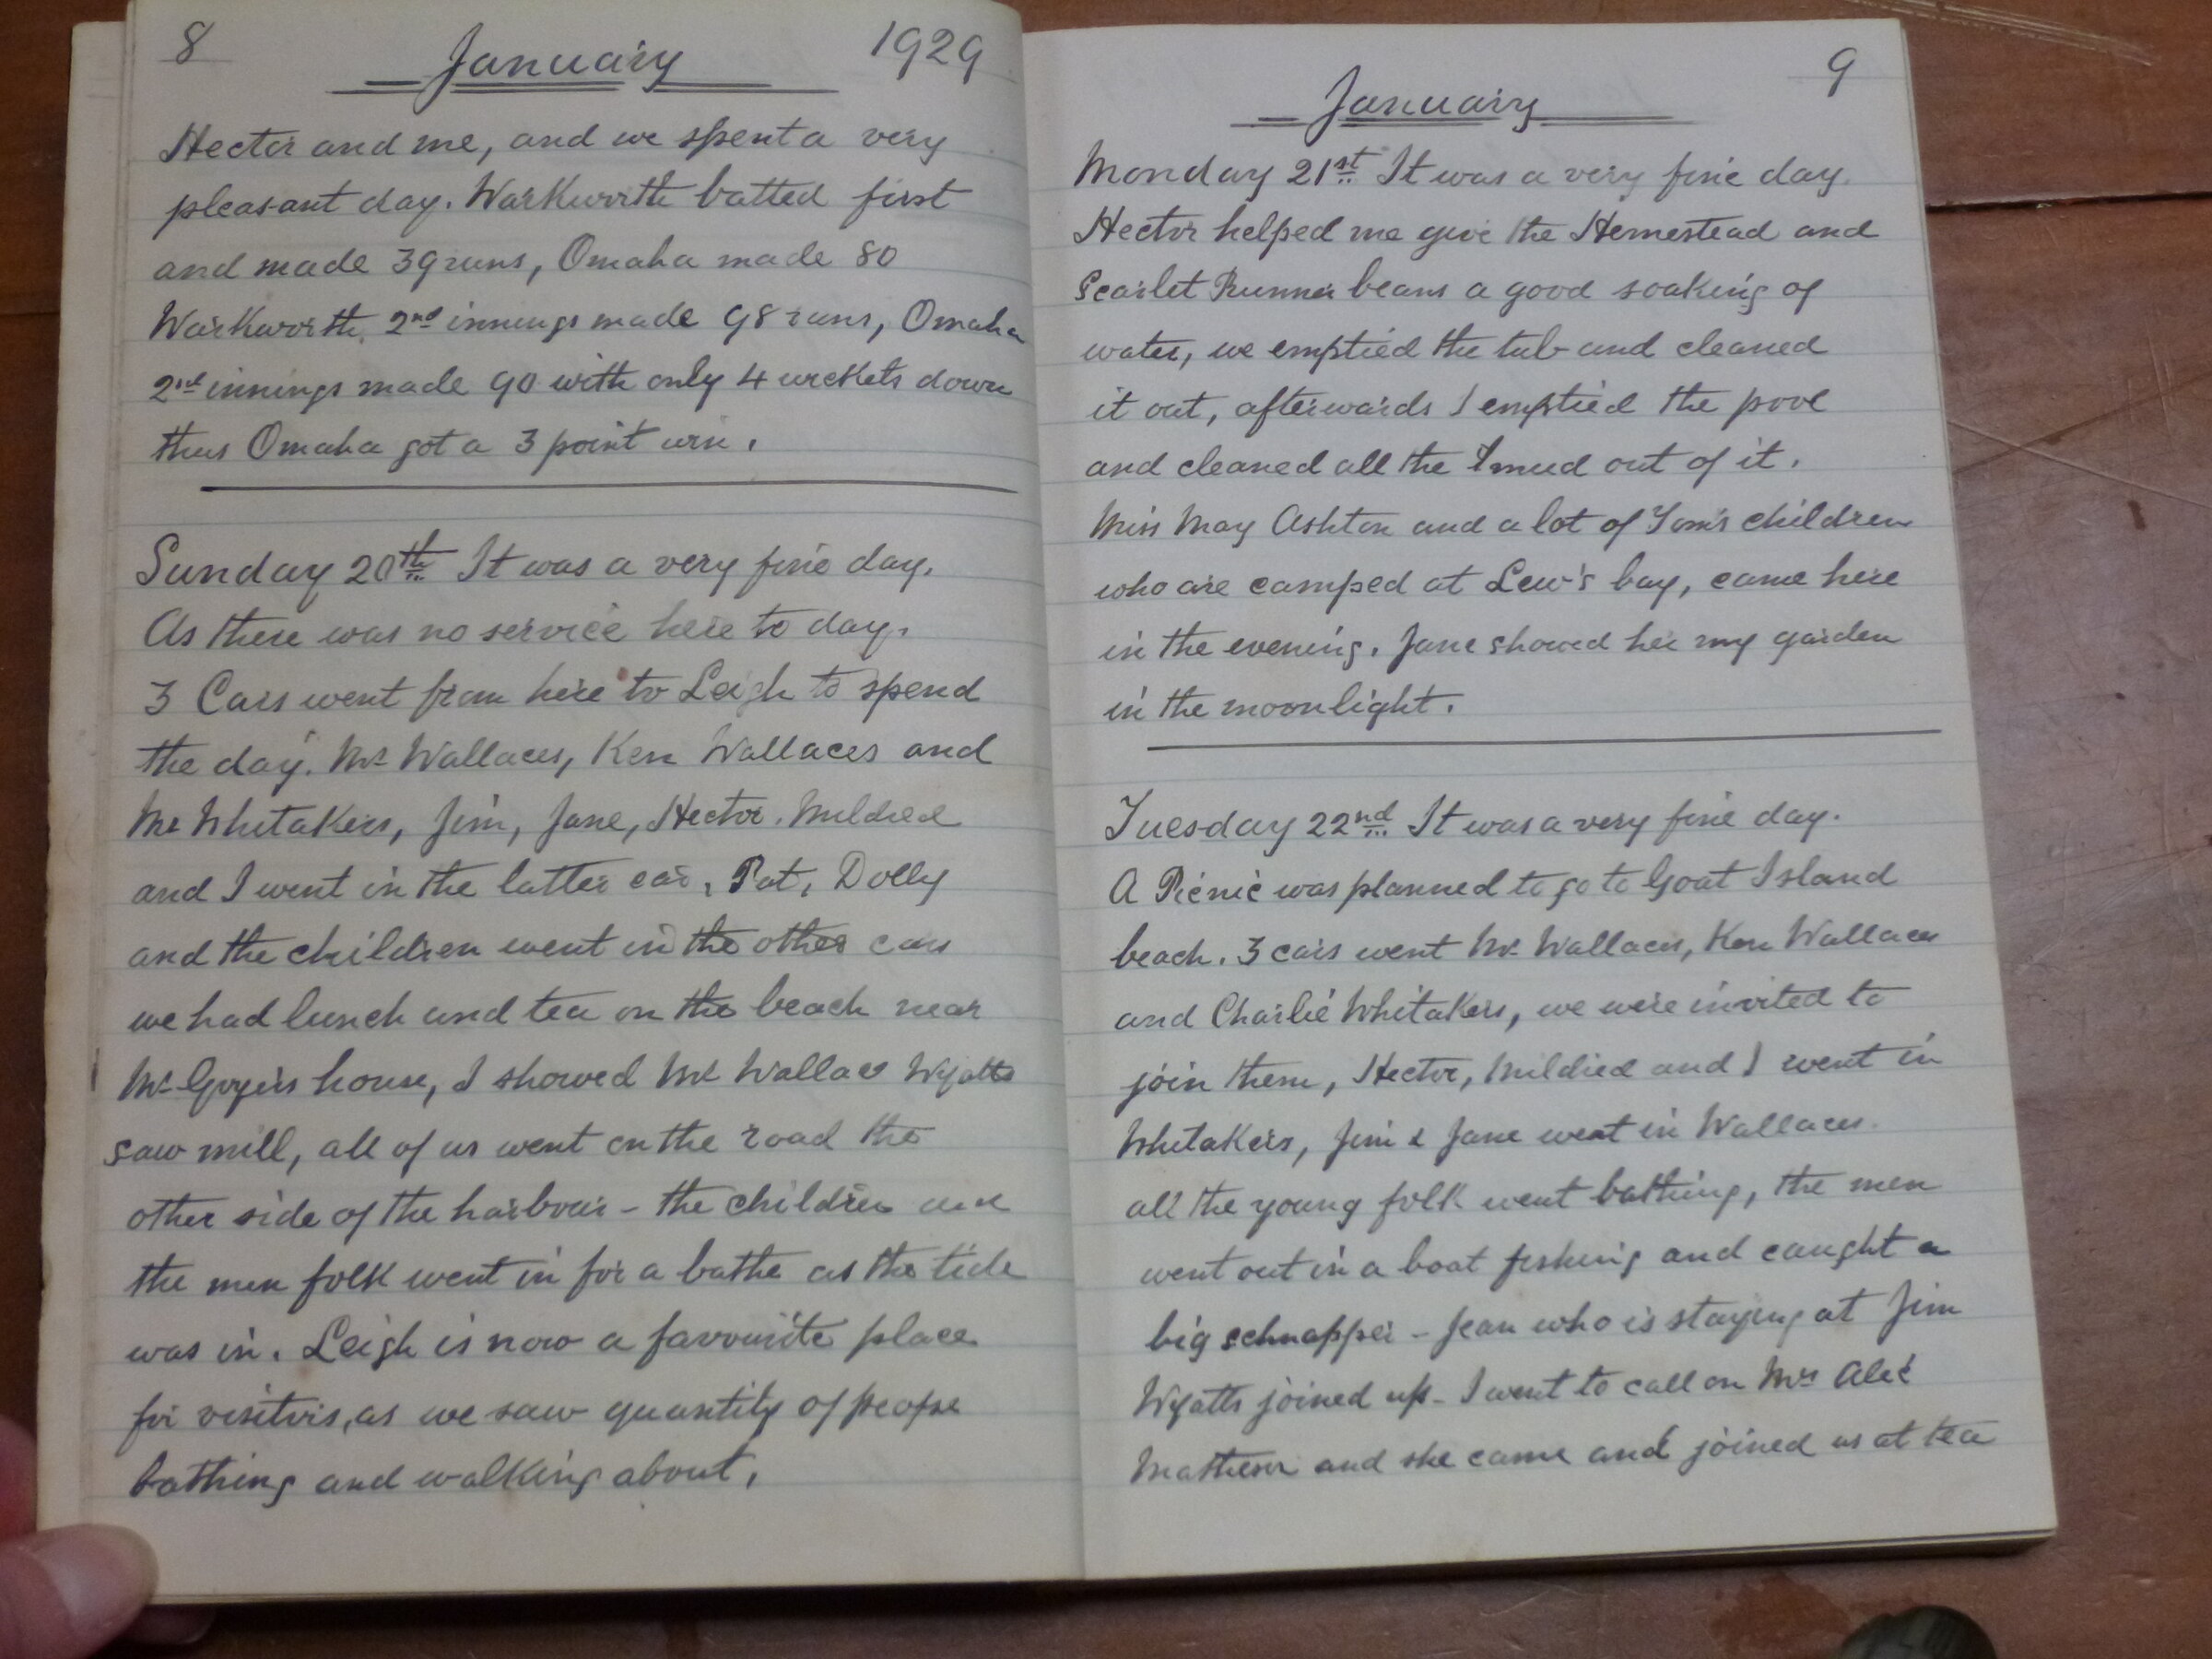 8 January 1929
Hector and me, and we spent a very
pleasant day. Warkworth batted first
and made 39 runs, Omaha made 80
Warkworth, 2nd innings made 98 runs, Omaha
2nd innings made 90 with only 4 wickets down
thus Omaha got a 3 point win.
Sunday 20th It was a very fine day.
As there was no service here to day,
3 Cars went from here to Leigh to spend
the day. Mr Wallaces, Ken Wallaces and
Mr Whitakers, Jim, Jane, Hector, Mildred
and I went in the latter car, Pat, Dolly
and the children went in the other cars
we had lunch and tea on the beach near
Mr house, I showed Mr Wallace Wyatts
saw mill, all of us went on the road the
other side of the harbour - the children and
the men folk went in for a bathe as the tide
was in. Leigh is now a favourite place
for visitors, as we saw quantity of people
bathing and walking about.
9
January
Monday 21st It was a very fine day.
Hector helped me give the Hemestead and
Scarlet Runner beans a good soaking of
water, we emptied the tub and cleaned
it out, afterwards I emptied the pool
and cleaned all the mud out of it.
Miss May Ashton and a lot of Tom's children
who are camped at Lew's bay, came here
in the evening. Jane showed her my garden
in the moonlight.
Tuesday 22nd It was a very fine day.
A Picnic was planned to go to Goat Island
beach. 3 cars went Mr Wallaces, Ken Wallaces
and Charlie Whitakers, we were invited to
join them, Hector, Mildred and I went in
Whitakers, Jim & Jane went in Wallaces.
all the young folk went bathing, the men
went out in a boat fishing and caught a
big schnapper - Jean who is staying at Jim
Wyatts joined up - I went to call on Mrs Alec
Matheson and she came and joined us at tea